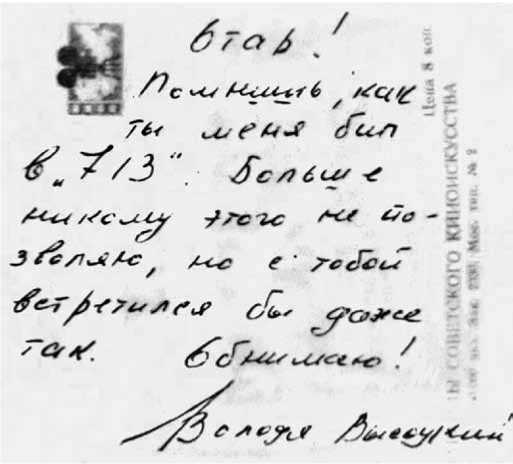 Отар!
Помнишь, как
ты меня бил
в „713“. Больше
никому этого не по-
зволяю, но с тобой
встретился бы даже
так. Обнимаю!
Володя Высоцкий
Цена 8 коп.
СОВЕТСКОГО КИНОИСКУССТВА
Зак. Мос. тип. № 2